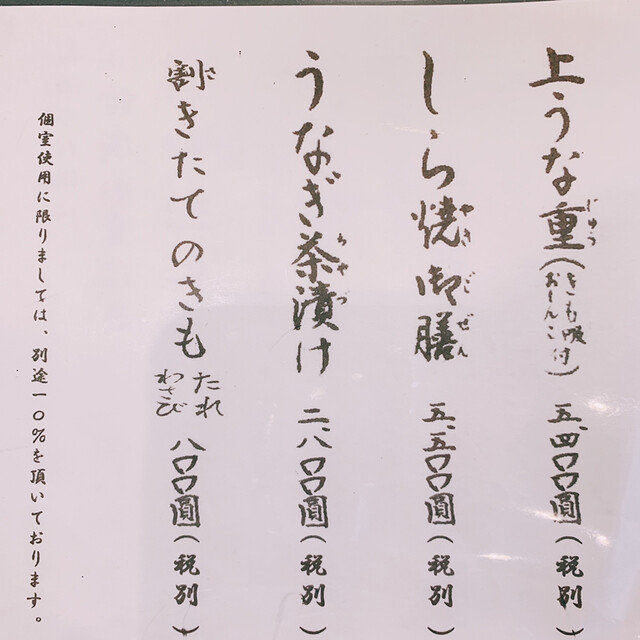 上うな重(きも吸おしんこ付)五、四〇〇圓(税別)
じゅう
しら焼御膳 五、五〇〇圓(税別)
やきごぜん
うなぎ茶漬け 二、八〇〇圓(税別)
ちゃづ
割きたてのきも たれ わさび 八〇〇圓(税別)
さ
個室使用に限りましては、別途一〇%を頂いております。